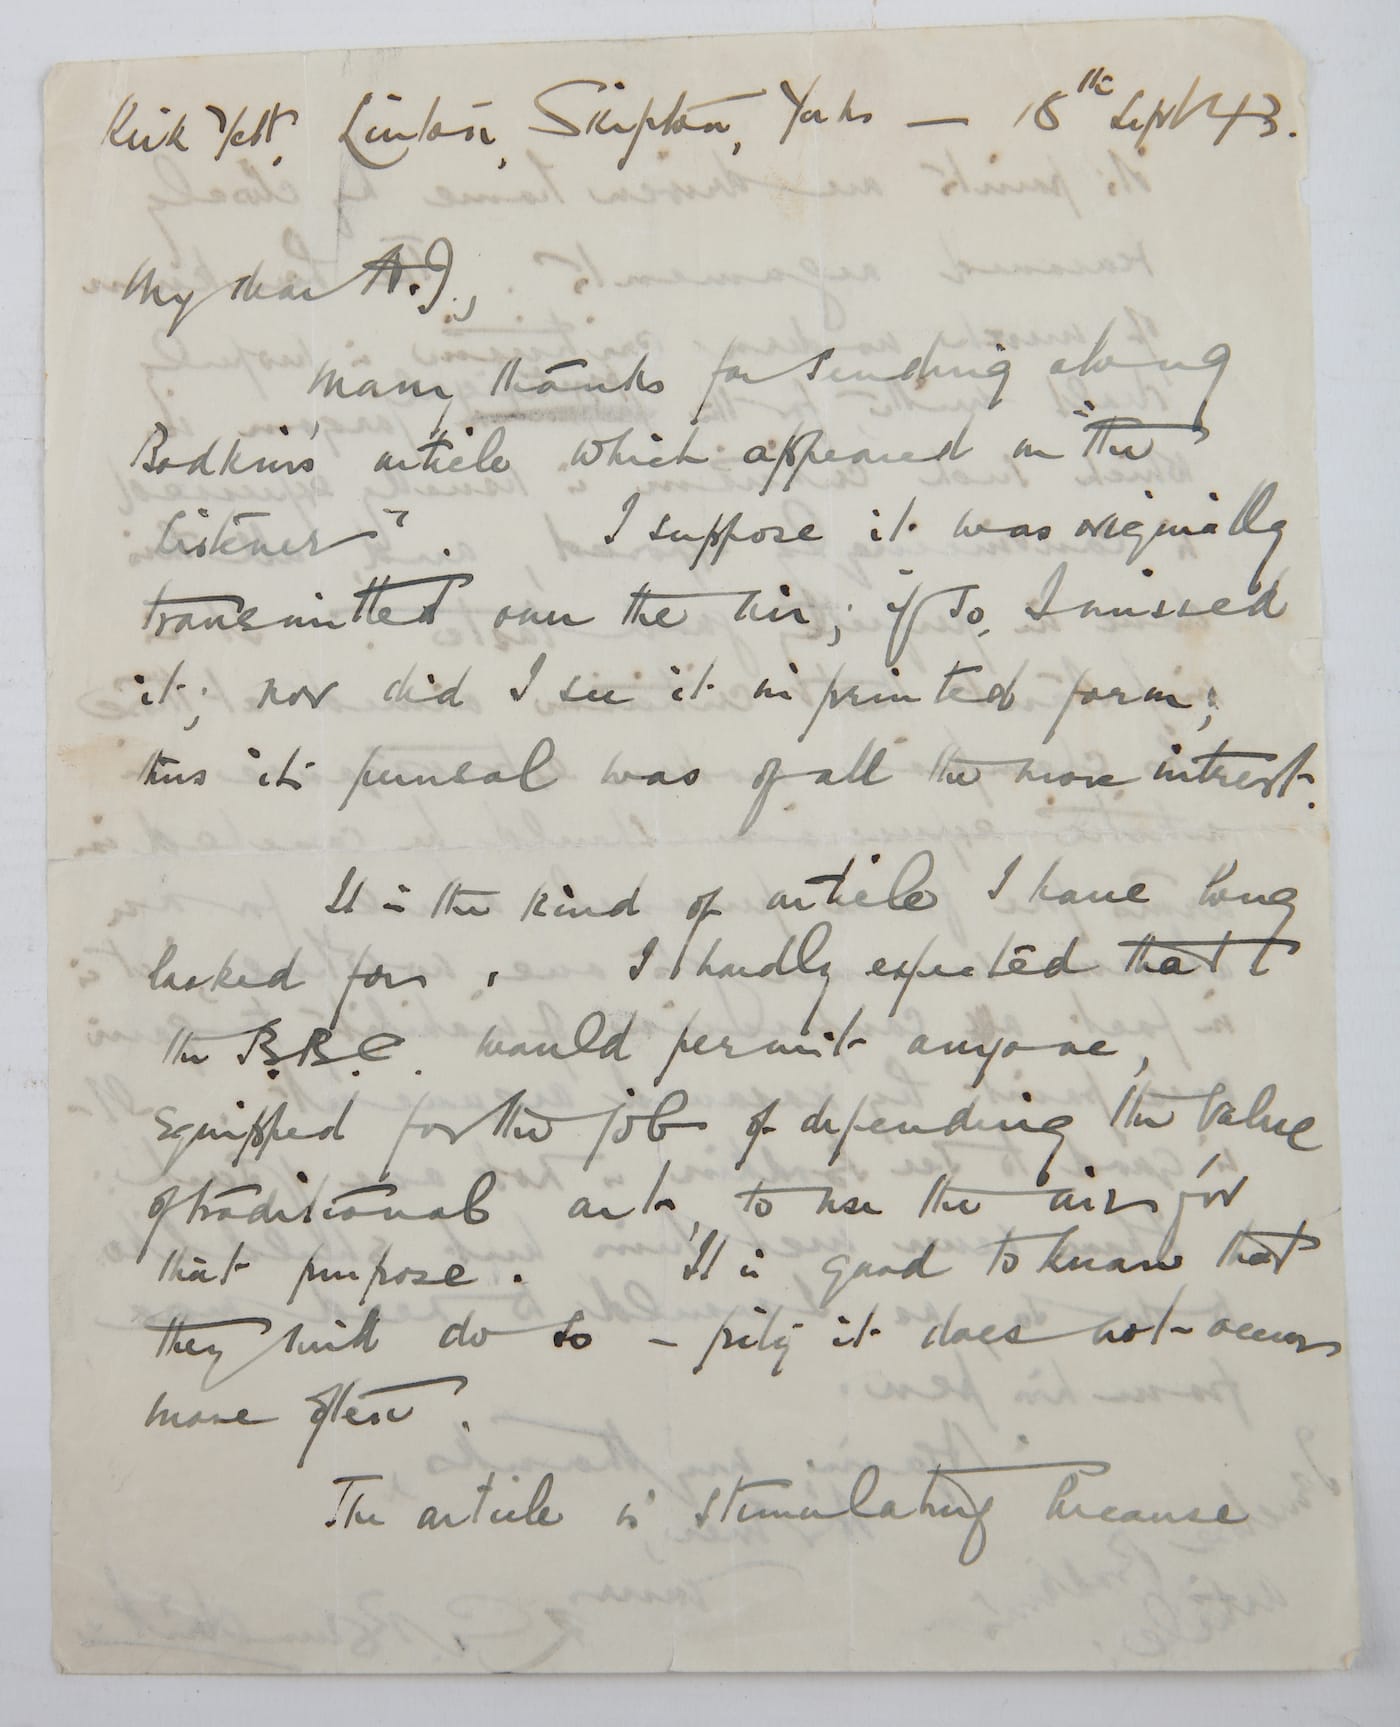 Kirk Yett, Linton, Skipton, Yorks — 18th Sept 43.
My dear A.J.,
Many thanks for sending along
Bodkin's article which appeared in "the
Listener". I suppose it was originally
transmitted over the air; if so, I missed
it; nor did I see it in printed form;
thus its perusal was of all the more intrest.
It is the kind of article I have long
looked for. I hardly expected that
the B.B.C. would permit anyone,
equipped for the job of defending the value
of traditional art, to use the air for
that purpose. It is good to know that
they will do so – pity it does not occur
more often.
The article is stimulating because